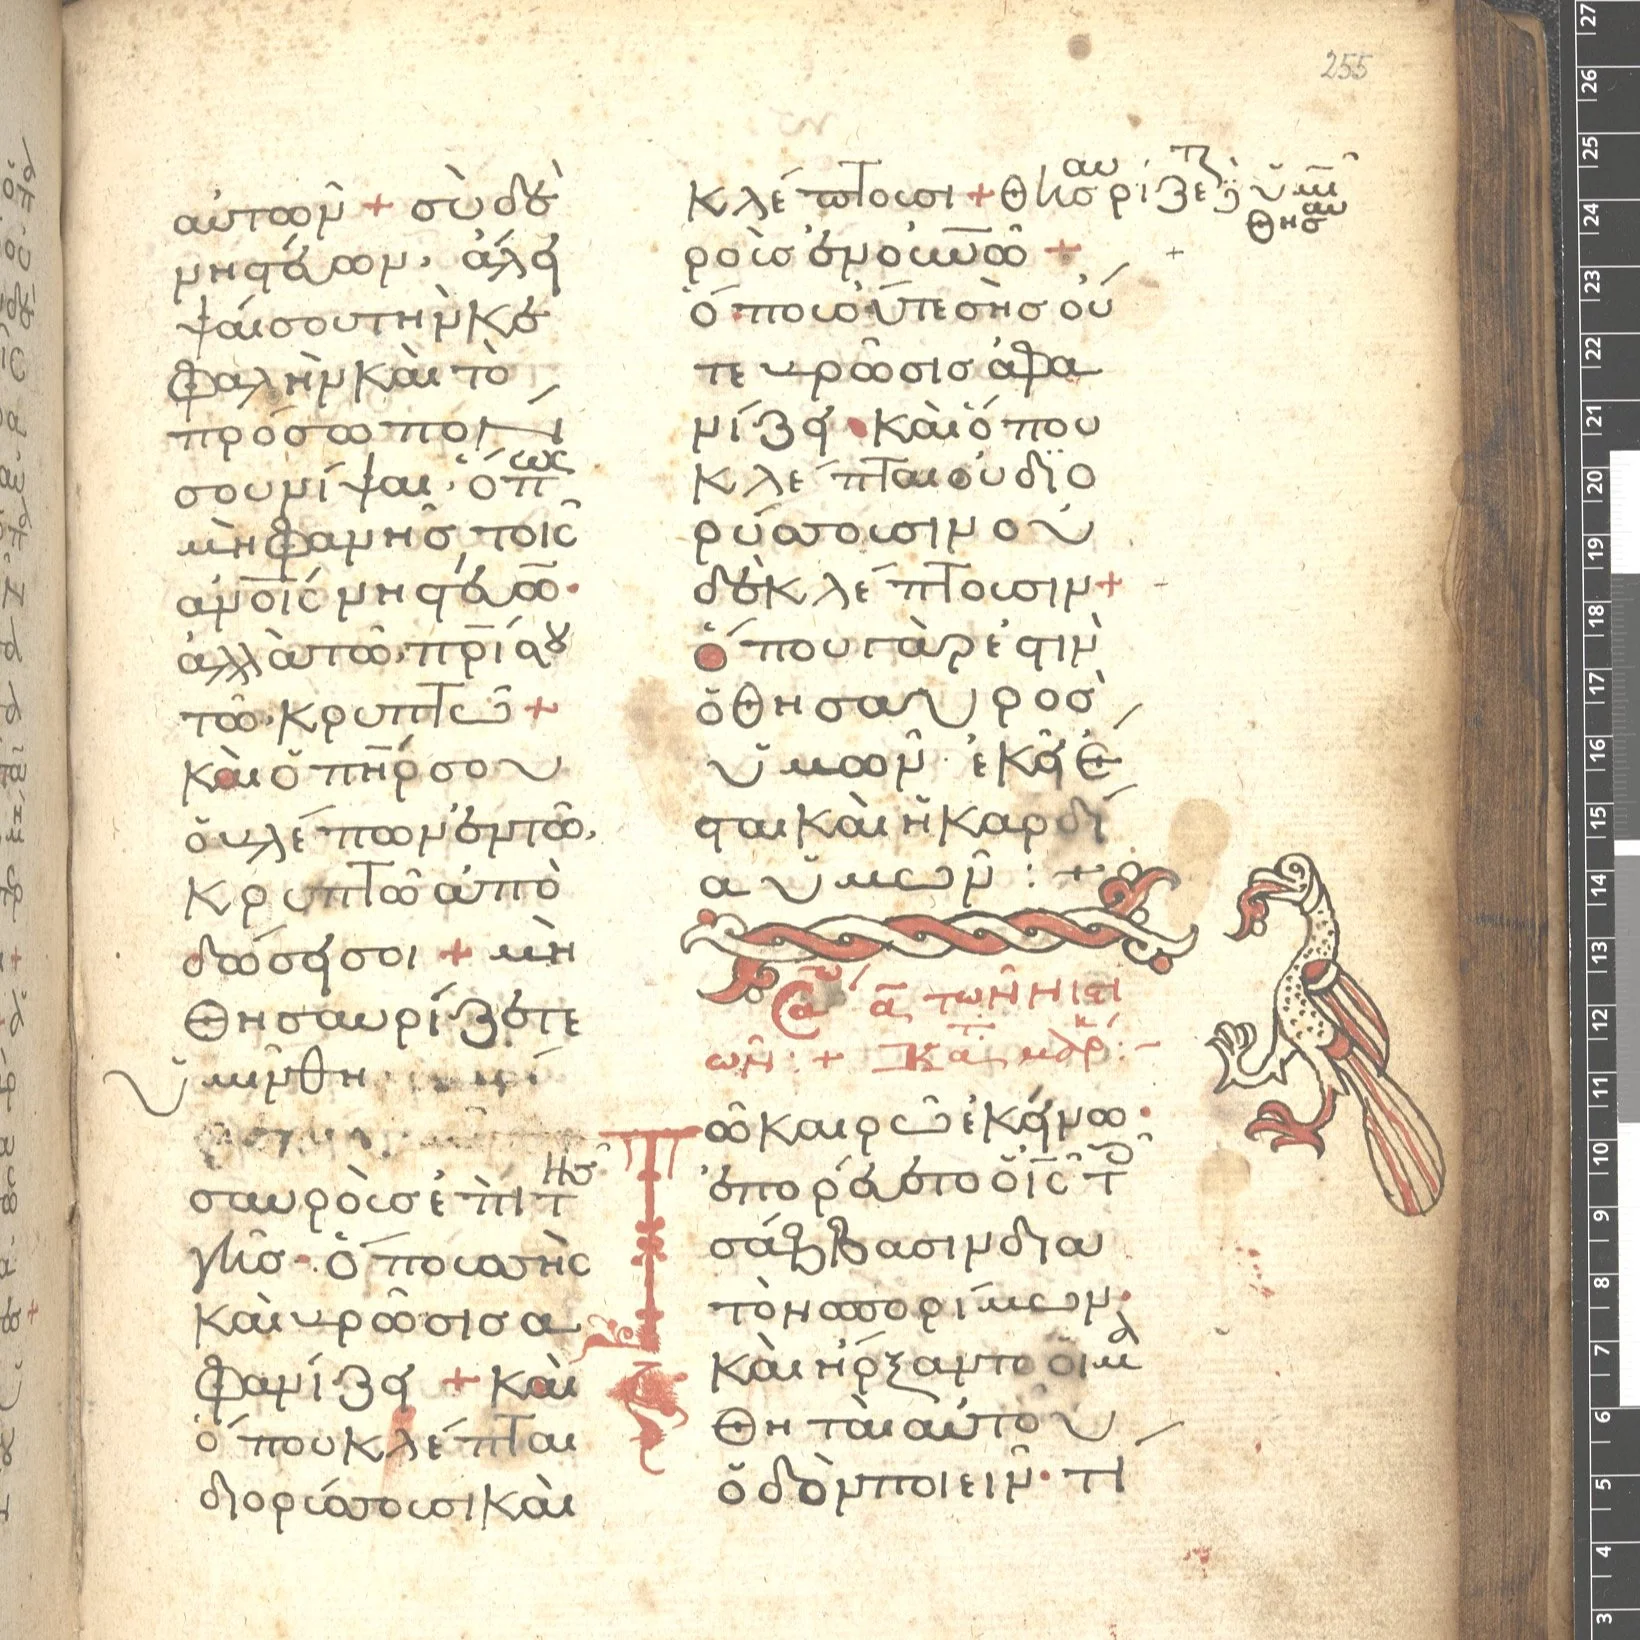 255
αὐτῶν + σὺ δὲ
νηστεύων, ἄλει
ψαι σου τὴν κε
φαλὴν καὶ τὸ
πρόσωπόν
σου νίψαι· ὅπως
μὴ φανῆς τοῖς
ἀνοις νηστεύων·
ἀλλὰ τῶ πρι σου
τῶ κρυπτῶ +
καὶ ὁ πηρ σου
ὁ βλέπων ἐν τῶ
κρυπτῶ ἀπο
δώσει σοι + μὴ
θησαυρίζετε
ὑμῖν θη
σαυροὺσ ἐπὶ τῆσ
γῆσ· ὅπου σὴς
καὶ βρῶσισ ἀ
φανίζει + καὶ
ὅπου κλέπται
διορύσσουσι καὶ
κλέπτουσι + θησαυρίζετε ὑμῖν
θησαυ
ροὺσ ἐν οὐνω +
ὅπου οὔτε σὴσ οὔ
τε βρῶσισ ἀφα
νίζει· καὶ ὅπου
κλέπται οὐ διο
ρύσσουσιν οὐ
δὲ κλέπτουσιν +
ὅπου γὰρ ἐστιν
ὁ θησαυροσ
ὑμῶν ἐκεῖ ἔ
σται καὶ ἡ καρδί
α ὑμῶν : +
Σα α τῶν νηστει
ῶν : + κατ μαρκ :
Τῶ καιρῶ ἐκείνω·
ἐπορεύετο ὁ ις τοῖσ
σάββασιν δια
τῶν σπορίμων·
καὶ ἤρξαντο οἱ μα
θηταὶ αὐτοῦ
ὁδὸν ποιεῖν· τί